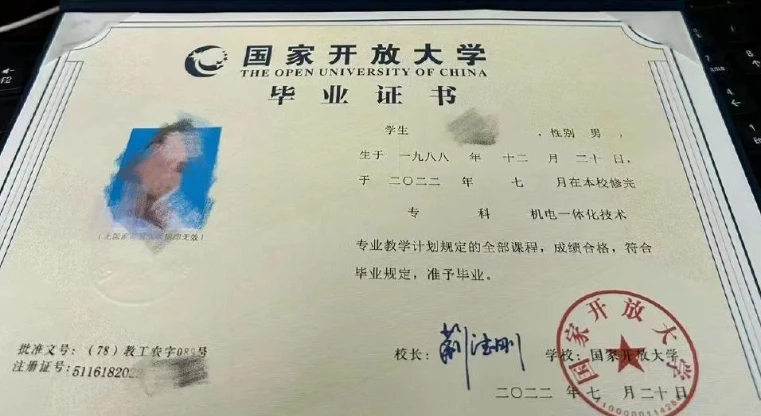 国家开放大学
THE OPEN UNIVERSITY OF CHINA
毕业证书
学生 ，性别 男 ，
生于 一九八八 年 十二 月 二十 日，
于 二〇二二 年 七 月在本校修完
专 科 机电一体化技术
专业教学计划规定的全部课程，成绩合格，符合
毕业规定，准予毕业。
批准文号：（78）教工农字089号
注册证号：511618202
校长： 学校：国家开放大学
二〇二二 年 七 月 二十 日
国家开放大学
F2